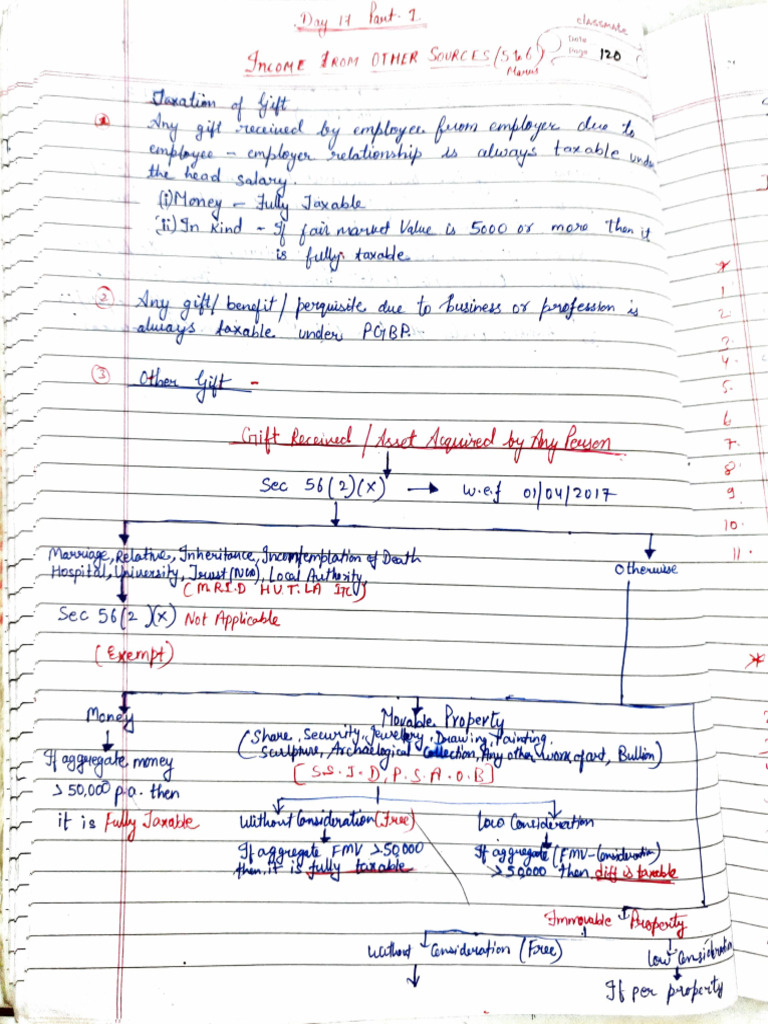 Day 17 Part-1
classmate
Date
Page 120
INCOME FROM OTHER SOURCES (5 to 6 Marks)
Taxation of Gift
① Any gift received by employee from employer due to
employee - employer relationship is always taxable under
the head salary.
(i) Money - Fully Taxable
(ii) In Kind - If fair market Value is 5000 or more Then it
is fully taxable
② Any gift/ benefit / perquisite due to business or profession is
always taxable under PGBP.
③ Other Gift -
Gift Received / Asset Acquired by Any Person
Sec 56(2)(x) → w.e.f 01/04/2017
Marriage, Relative, Inheritance, Incontemplation of Death
Hospital, University, Trust (NGO), Local Authority
(M.R.I.D H.U.T.LA ITC)
Otherwise
Sec 56(2)(x) Not Applicable
(Exempt)
Money
Movable Property
(Share, Security, Jewellery, Drawing, Painting,
Sculpture, Archaelogical Collection, Any other work of art, Bullion)
[S.S.J.D, P.S.A.O.B]
If aggregate money
> 50,000 p.a. then
it is Fully Taxable
Without Consideration (Free)
Low Consideration
If aggregate FMV > 50,000
then it is fully taxable
If aggregate (FMV - Consideration)
> 50,000 then diff is taxable
Immovable Property
Without Consideration (Free)
Low Consideration
If per property
1
2
3.
4.
5.
6
7.
8.
9
10.
11.